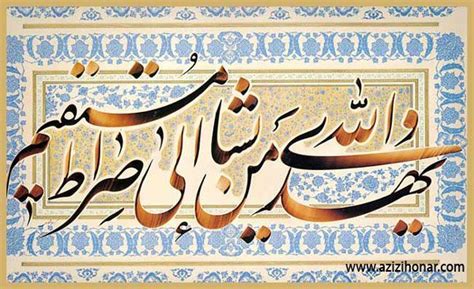 والله يهدي من يشاء إلى صِراط مُستقيم
www.azizihonar.com